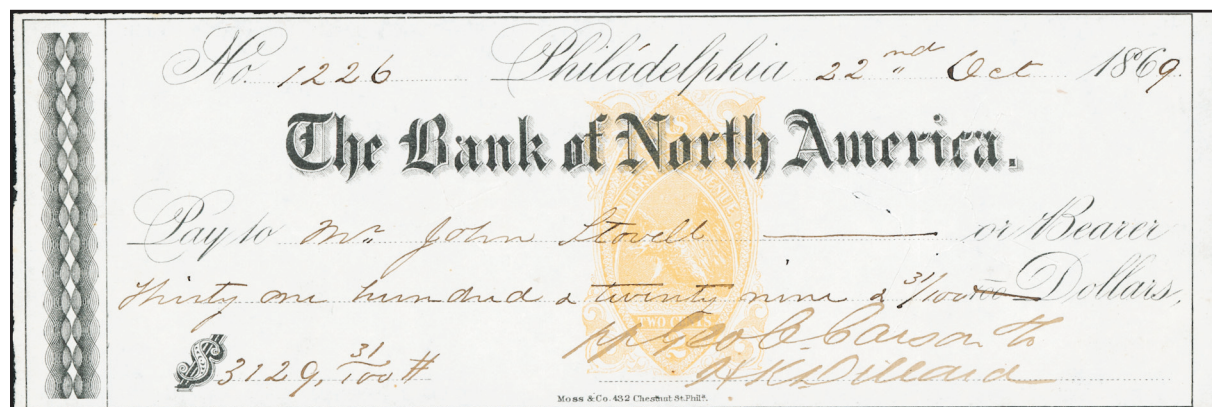 No. 1226 Philadelphia 22nd Oct 1869.
The Bank of North America.
Pay to Mr. John Stovell or Bearer
Thirty one hundred & twenty nine & 31/100 Dollars,
$3129,31/100 #
TWO CENTS
pp Geo C. Carson & Co
H K Dillard
Moss & Co. 432 Chestnut St. Phila.